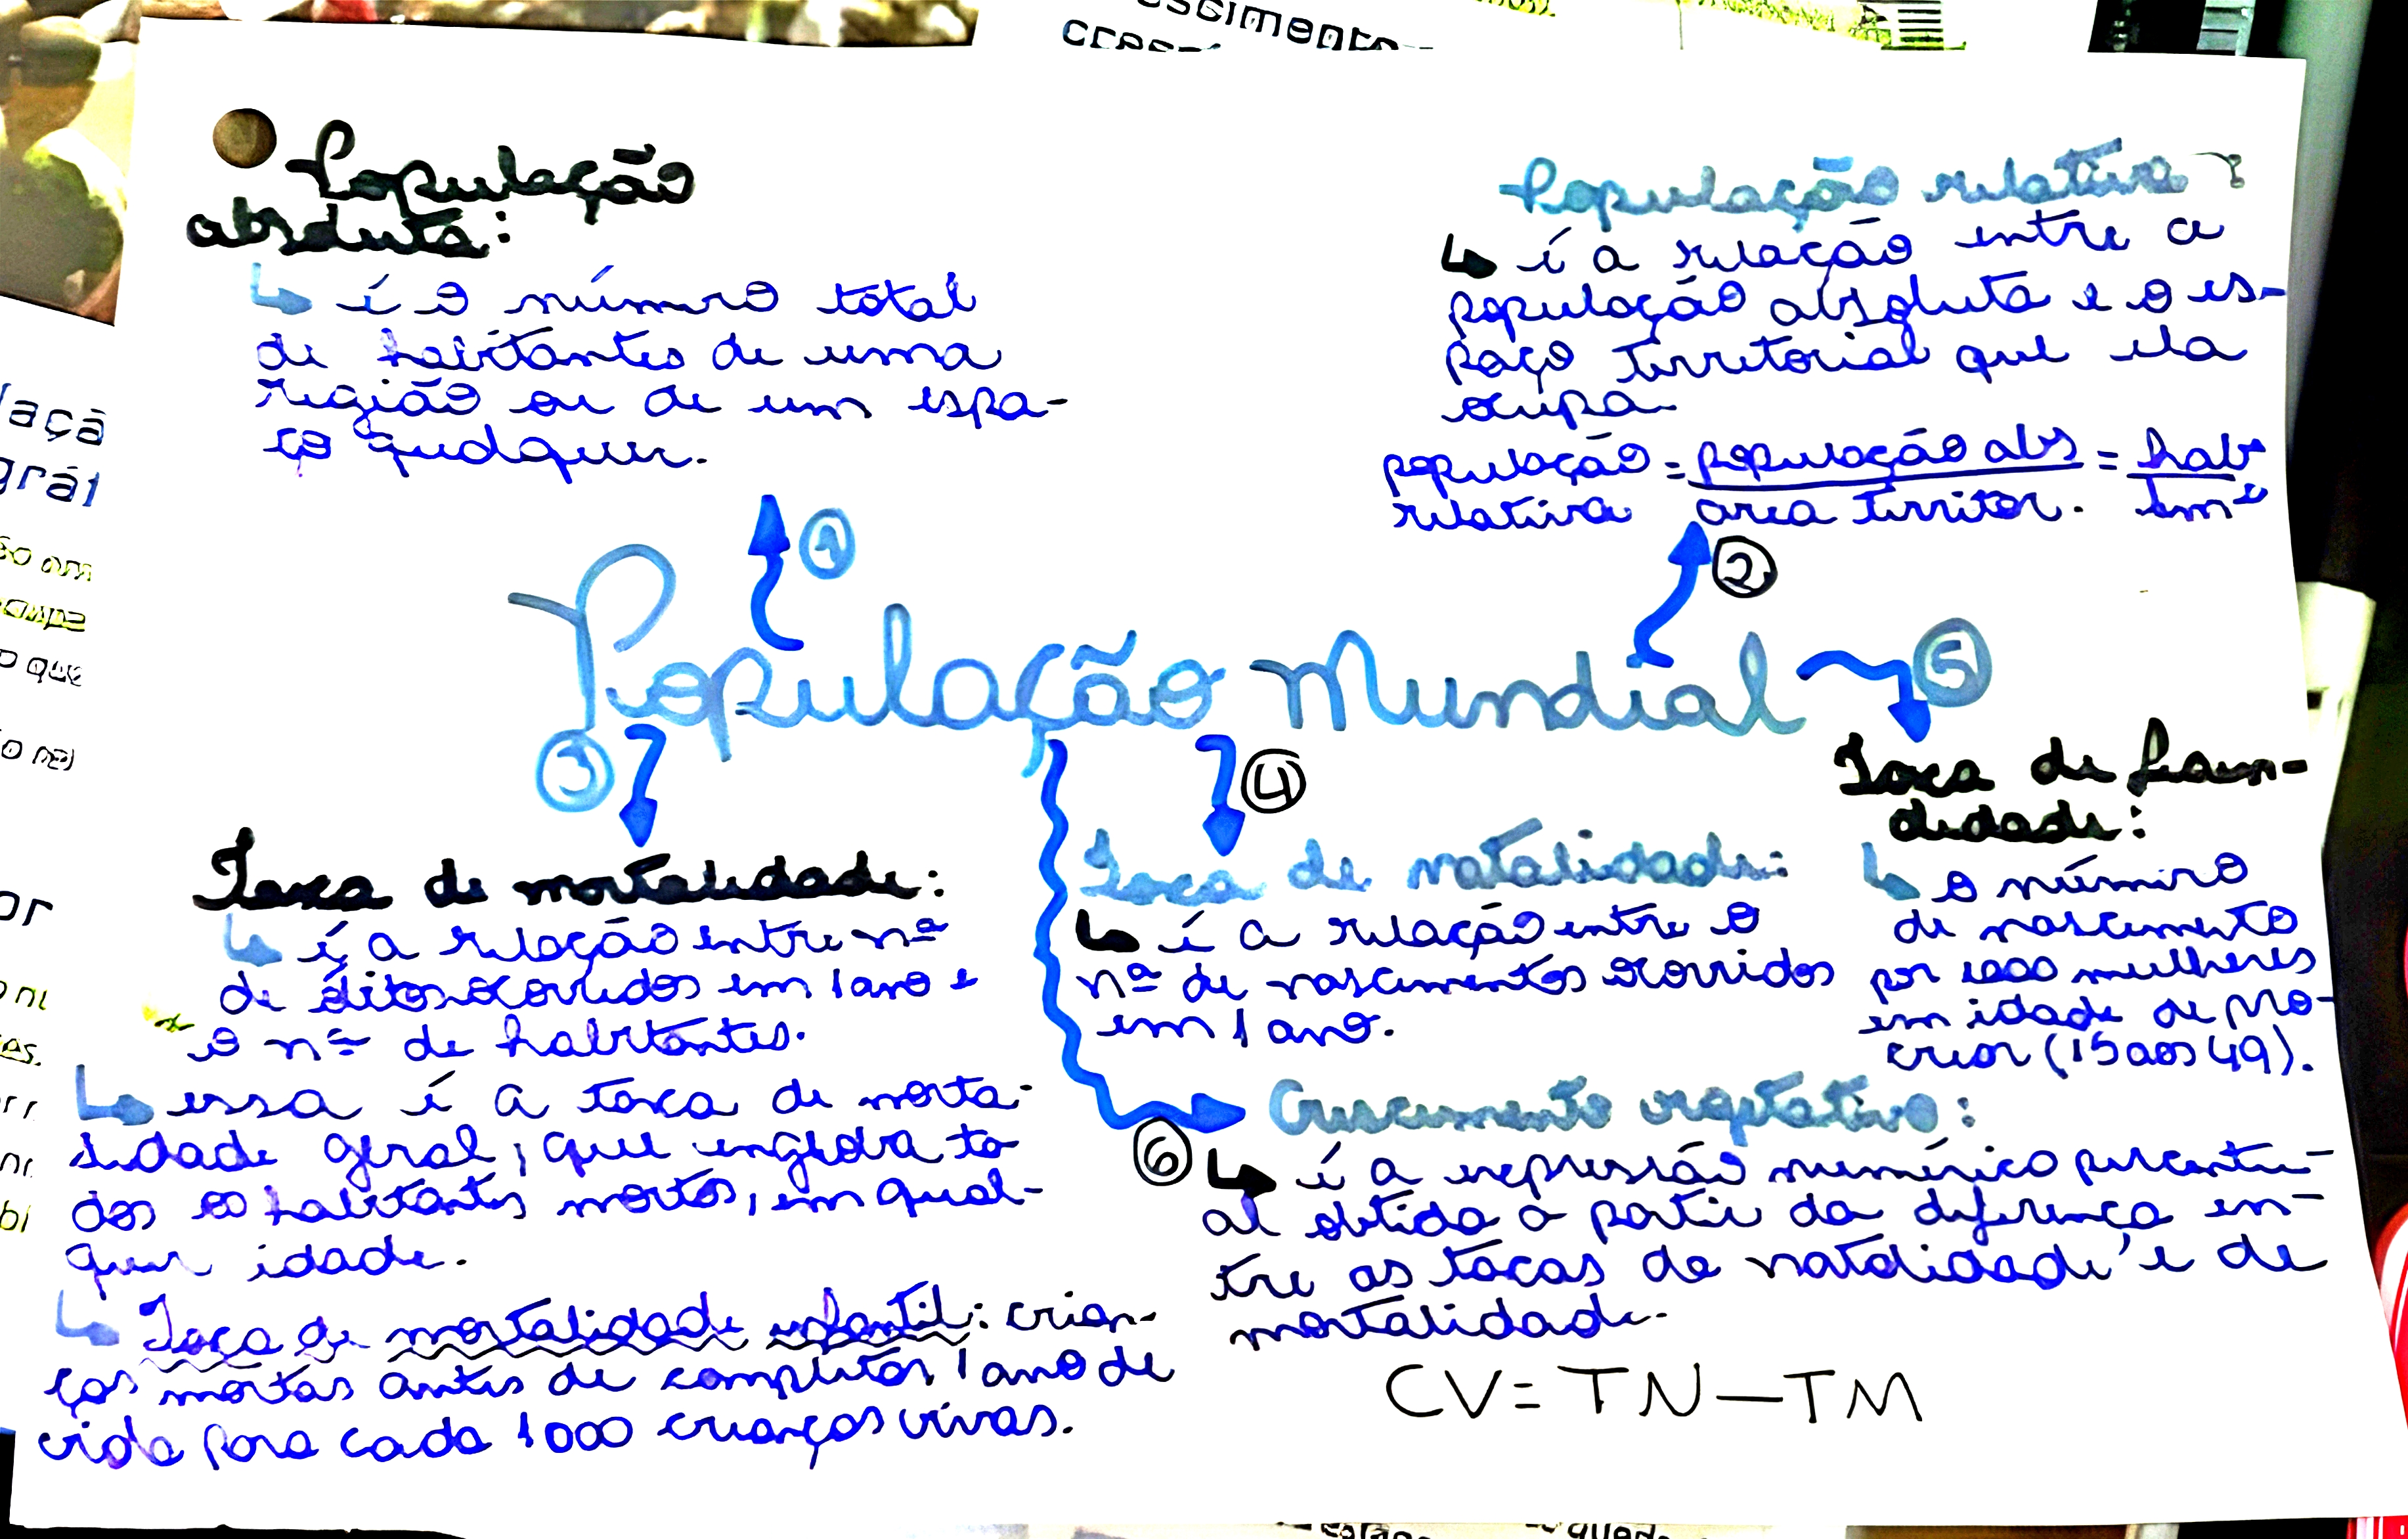 População
absoluta:
↳ é o número total
de habitantes de uma
região ou de um espa-
ço qualquer.
População relativa:
↳ é a relação entre a
população absoluta e o es-
paço territorial que ela
ocupa.
população relativa = população abs / area territor. = hab / km²
① ②
População Mundial
⑤
③ ④
Taxa de mortalidade:
↳ é a relação entre nº
de óbitos ocorridos em 1 ano e
o nº de habitantes.
↳ essa é a taxa de morta-
lidade geral, que engloba to
dos os habitantes mortos, em qual-
quer idade.
↳ Taxa de mortalidade infantil: crian-
ças mortas antes de completar 1 ano de
vida para cada 1000 crianças vivas.
Taxa de natalidade:
↳ é a relação entre o
nº de nascimentos ocorridos
em 1 ano.
Taxa de fecun-
didade:
↳ o número
de nascimento
por 1000 mulheres
em idade de pro-
criar (15 aos 49).
⑥
Crescimento vegetativo:
↳ é a expressão numérica percentu-
al obtida a partir da diferença en-
tre as taxas de natalidade e de
mortalidade.
CV = TN — TM